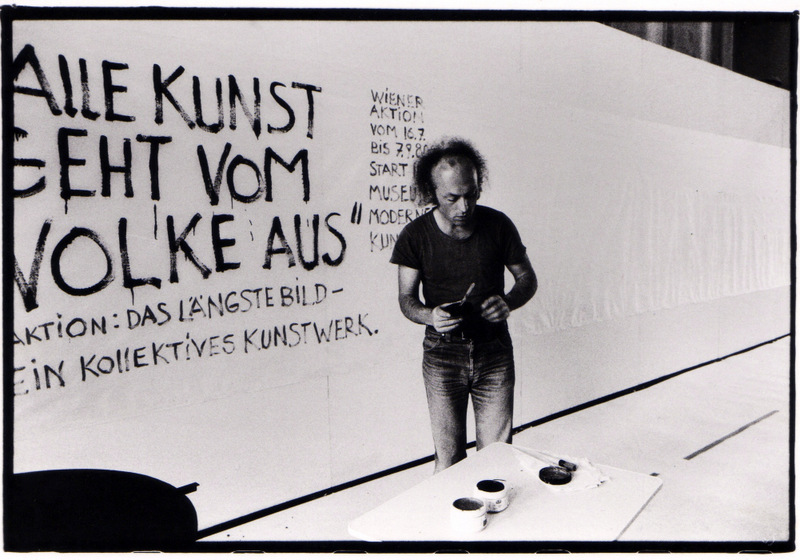 ALLE KUNST
GEHT VOM
VOLKE AUS"
AKTION: DAS LÄNGSTE BILD-
EIN KOLLEKTIVES KUNSTWERK.
WIENER
AKTION
VOM 16.7.
BIS 7.9.80
START
MODERNE